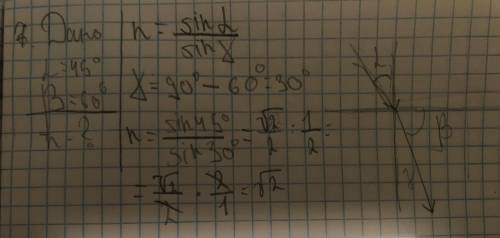 8. Дано
α=45°
β=60°
n-?
n = sinα / sinγ
γ=90°-60°=30°
n = sin45° / sin30° = √2/2 : 1/2 =
= √2/2 · 2/1 = √2
α
β
γ